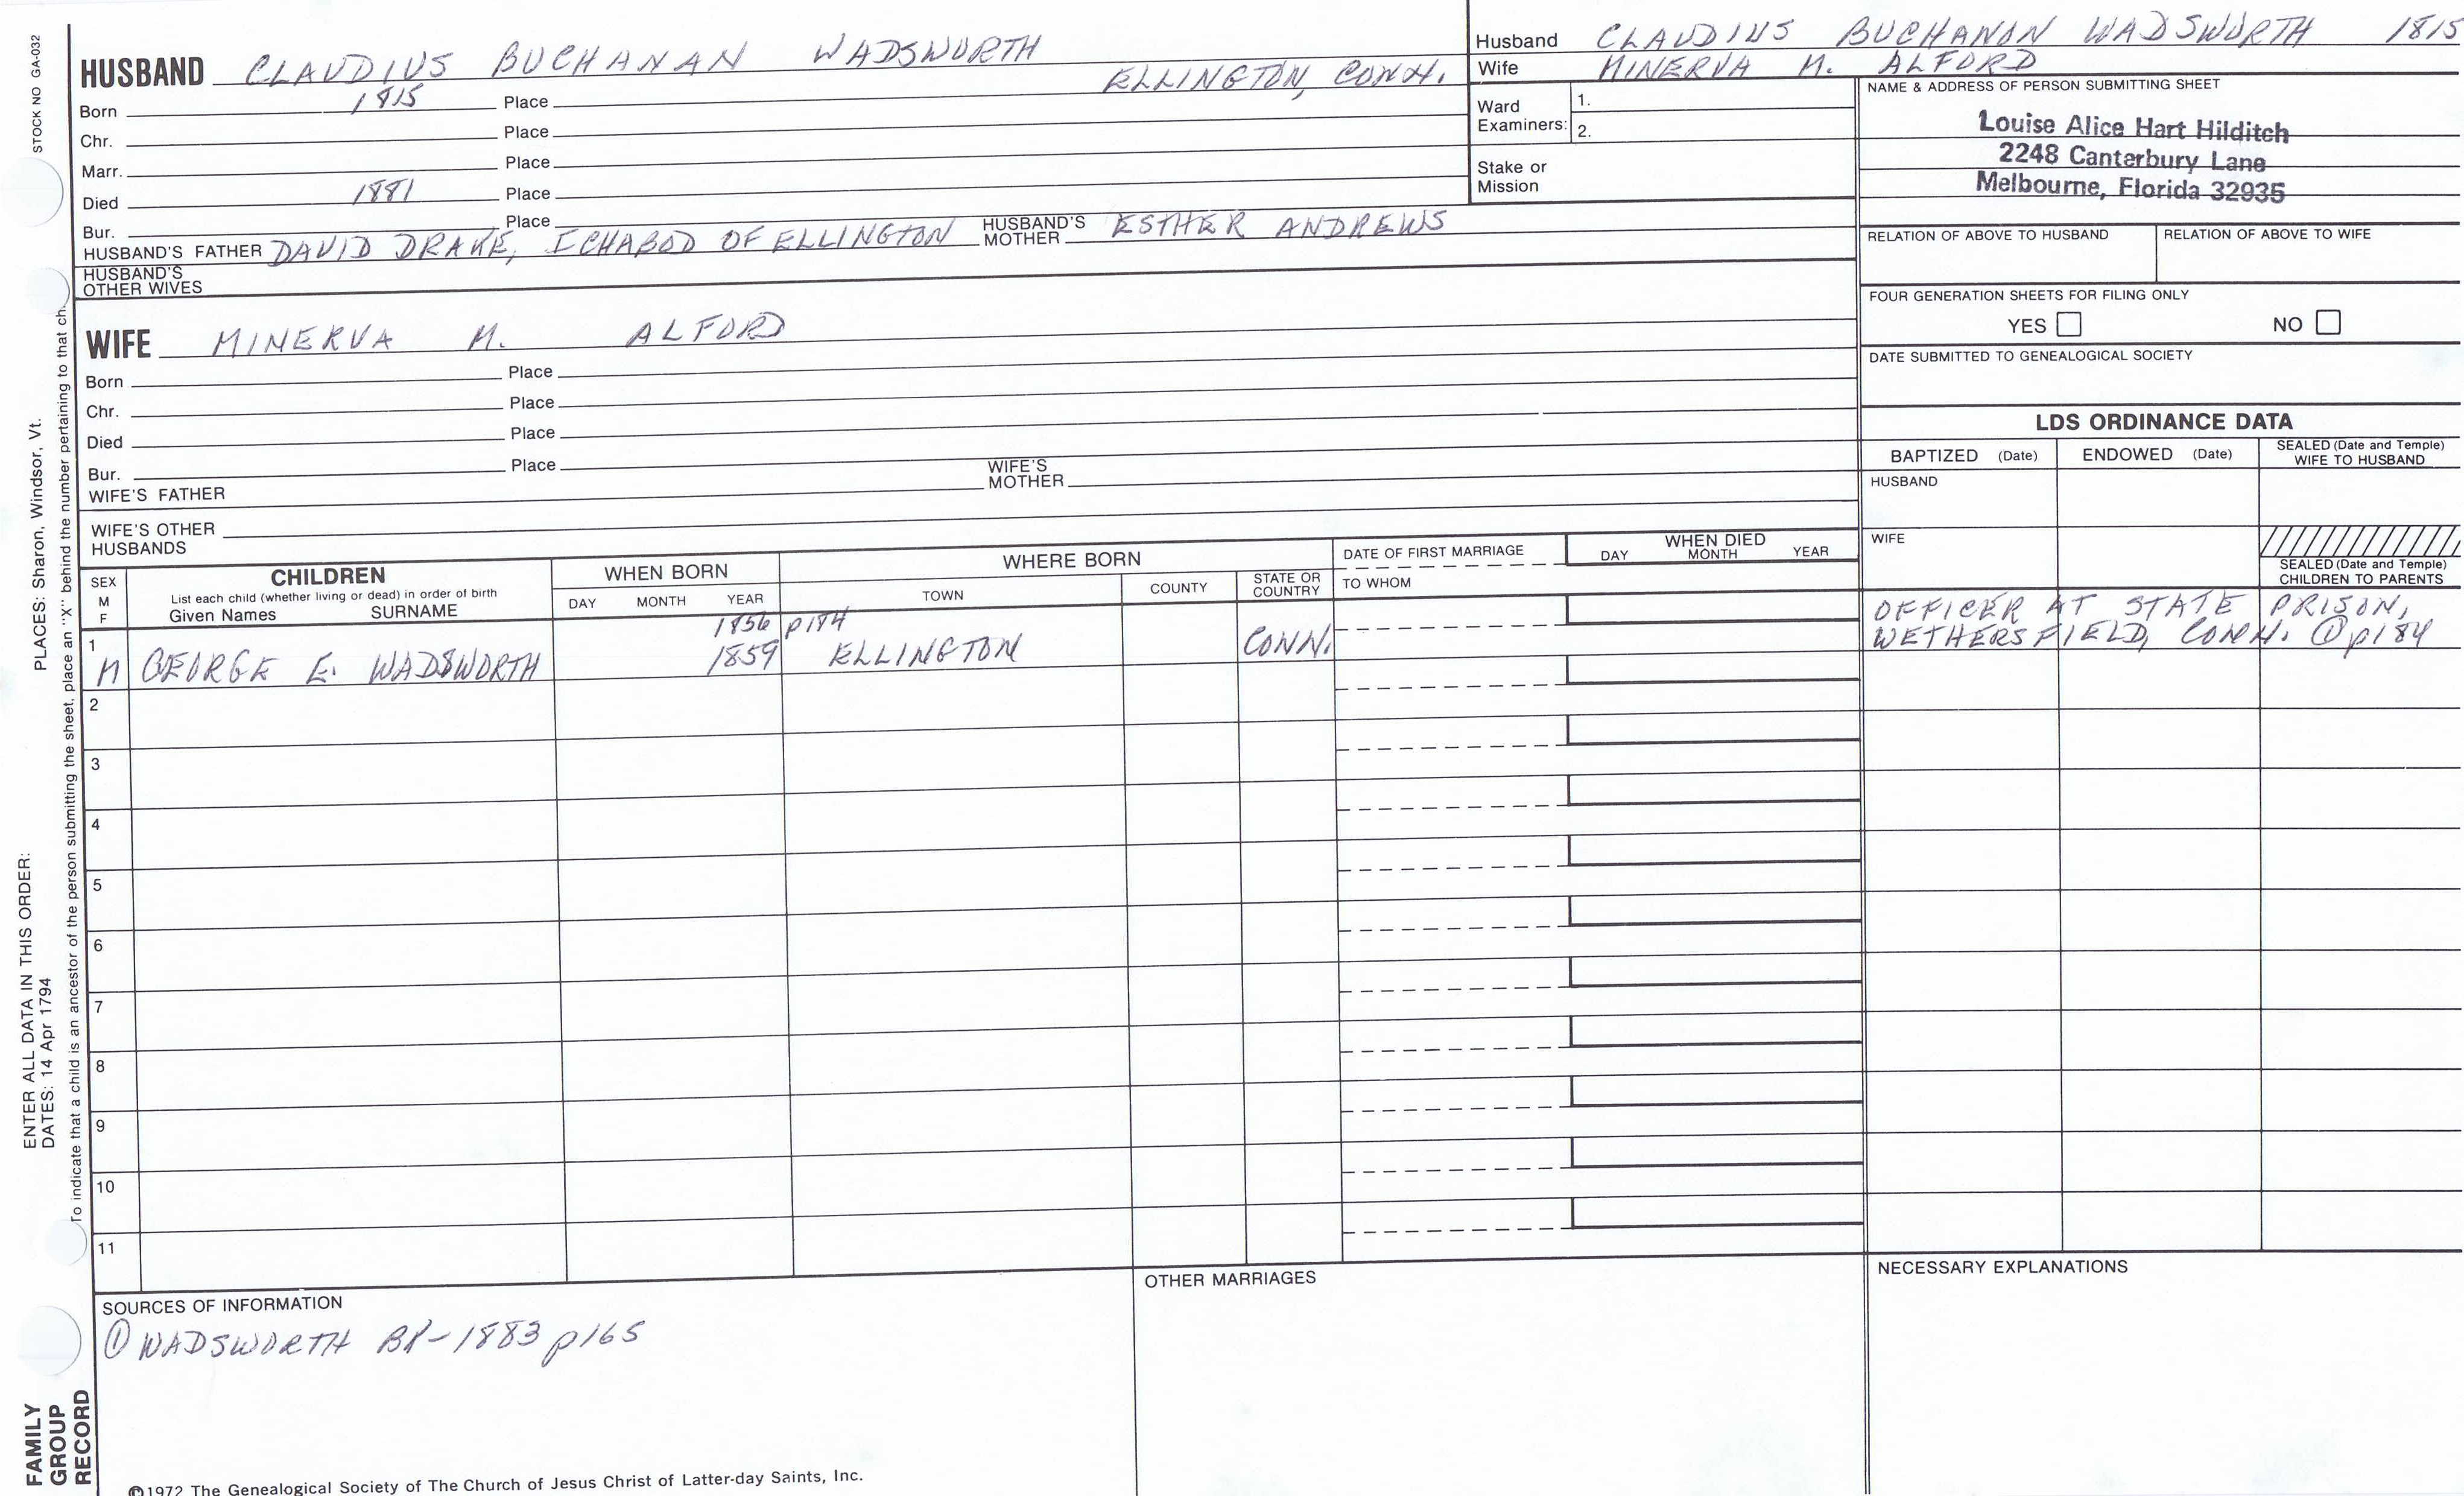 STOCK NO GA-032
HUSBAND CLAUDIUS BUCHANAN WADSWORTH
Born 1815 Place ELLINGTON, CONN.
Chr. Place
Marr. Place
Died 1881 Place
Bur. Place
HUSBAND'S FATHER DAVID DRAKE, ICHABOD OF ELLINGTON HUSBAND'S MOTHER ESTHER ANDREWS
HUSBAND'S OTHER WIVES
WIFE MINERVA M. ALFORD
Born Place
Chr. Place
Died Place
Bur. Place
WIFE'S FATHER WIFE'S MOTHER
WIFE'S OTHER HUSBANDS
Husband CLAUDIUS BUCHANAN WADSWORTH 1815
Wife MINERVA M. ALFORD
Ward Examiners: 1.
2.
Stake or Mission
NAME & ADDRESS OF PERSON SUBMITTING SHEET
Louise Alice Hart Hilditch
2248 Canterbury Lane
Melbourne, Florida 32935
RELATION OF ABOVE TO HUSBAND RELATION OF ABOVE TO WIFE
FOUR GENERATION SHEETS FOR FILING ONLY
YES NO
DATE SUBMITTED TO GENEALOGICAL SOCIETY
LDS ORDINANCE DATA
BAPTIZED (Date) ENDOWED (Date) SEALED (Date and Temple) WIFE TO HUSBAND
HUSBAND
WIFE
SEALED (Date and Temple) CHILDREN TO PARENTS
SEX M F
CHILDREN
List each child (whether living or dead) in order of birth
Given Names SURNAME
WHEN BORN
DAY MONTH YEAR
WHERE BORN
TOWN COUNTY STATE OR COUNTRY
DATE OF FIRST MARRIAGE
TO WHOM
WHEN DIED
DAY MONTH YEAR
1856 p184
1 M GEORGE E. WADSWORTH 1859 ELLINGTON CONN.
OFFICER AT STATE PRISON,
WETHERSFIELD, CONN. ① p184
2
3
4
5
6
7
8
9
10
11
SOURCES OF INFORMATION
① WADSWORTH BK-1883 p165
OTHER MARRIAGES
NECESSARY EXPLANATIONS
©1972 The Genealogical Society of The Church of Jesus Christ of Latter-day Saints, Inc.
ENTER ALL DATA IN THIS ORDER:
DATES: 14 Apr 1794
PLACES: Sharon, Windsor, Vt.
To indicate that a child is an ancestor of the person submitting the sheet, place an "X" behind the number pertaining to that ch
FAMILY
GROUP
RECORD